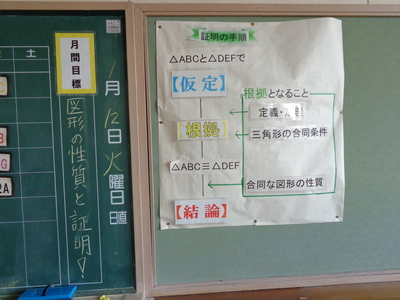 土
月間目標
図形の性質と証明!
月12日火曜日
証明の手順
△ABCと△DEFで
【仮定】
根拠となること
定義・
根拠
三角形の合同条件
△ABC≡△DEF
合同な図形の性質
【結論】
B
G
2A